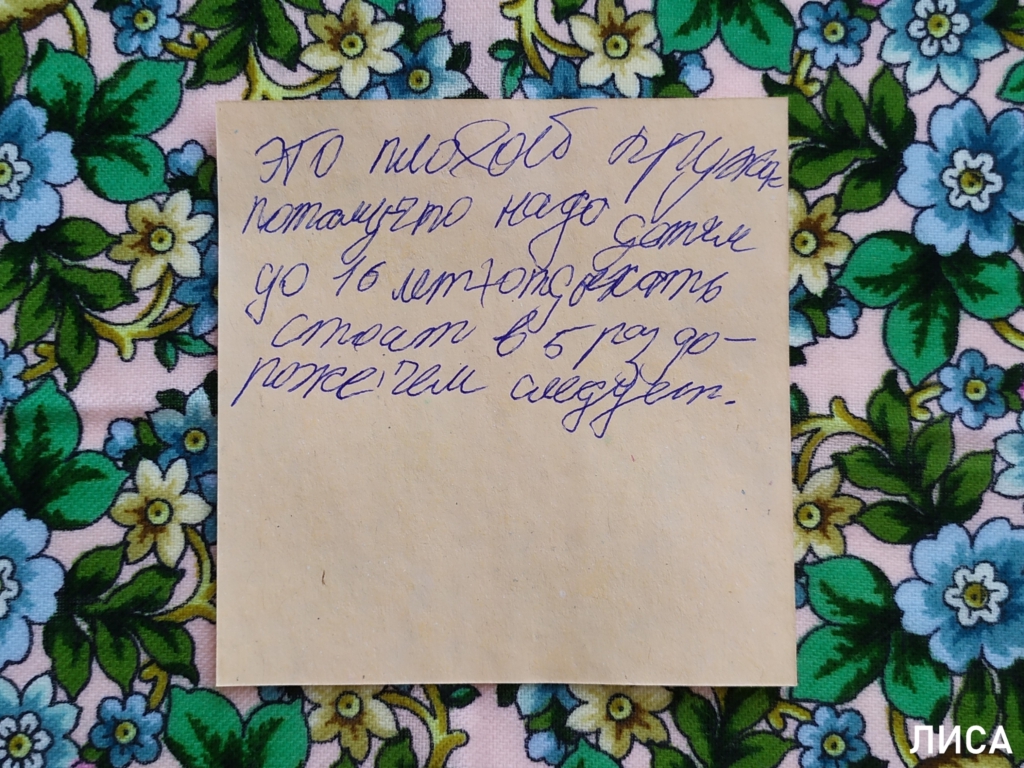 это плохой кружок
потамучто надо детям
до 16 лет+отдыхать
стоит в 5 раз до-
роже чем следует.
ЛИСА